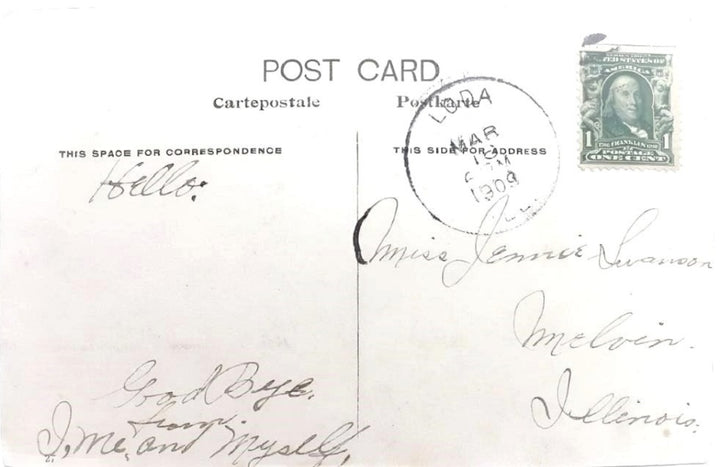 POST CARD
Cartepostale Postkarte
THIS SPACE FOR CORRESPONDENCE
THIS SIDE FOR ADDRESS
LODA
MAR
1909
ILL.
UNITED STATES OF
AMERICA
1 1
FRANKLIN
POSTAGE
ONE CENT
Hello:
Good Bye.
from
I, Me, and Myself,
Miss Jennie Swanson
Melvin.
Illinois.